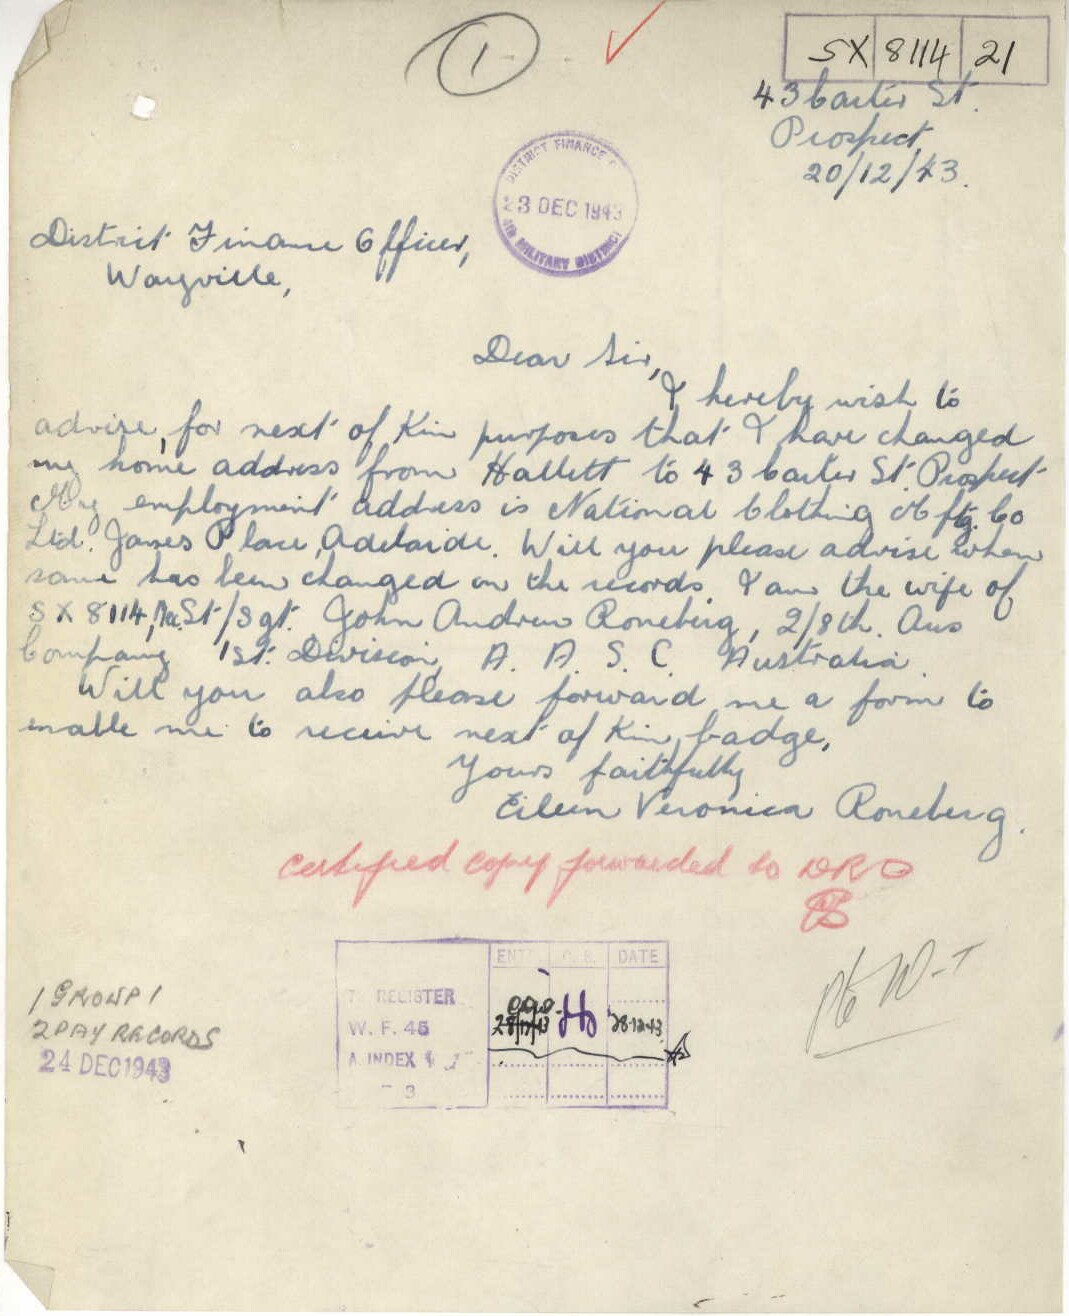 1
SX 8114 21
43 Carter St.
Prospect,
20/12/43.
DISTRICT FINANCE O
23 DEC 1943
MILITARY DISTRICT
District Finance Officer,
Wayville,
Dear Sir,
I hereby wish to
advise, for next of Kin purposes that I have changed
my home address from Hallett to 43 Carter St. Prospect
My employment address is National Clothing Mftg. Co
Ltd. James Place, Adelaide. Will you please advise when
same has been changed on the records. I am the wife of
SX 8114, St/Sgt. John Andrew Roneberg, 2/8th. Aus
Company 1st. Division, A. A. S. C. Australia.
Will you also please forward me a form to
enable me to receive next of Kin badge,
Yours faithfully
Eileen Veronica Roneberg.
certified copy forwarded to DRO
ENT DATE
REGISTER
W. F. 45
A. INDEX
3
28-12-43
1 GROUP 1
2 PAY RECORDS
24 DEC 1943